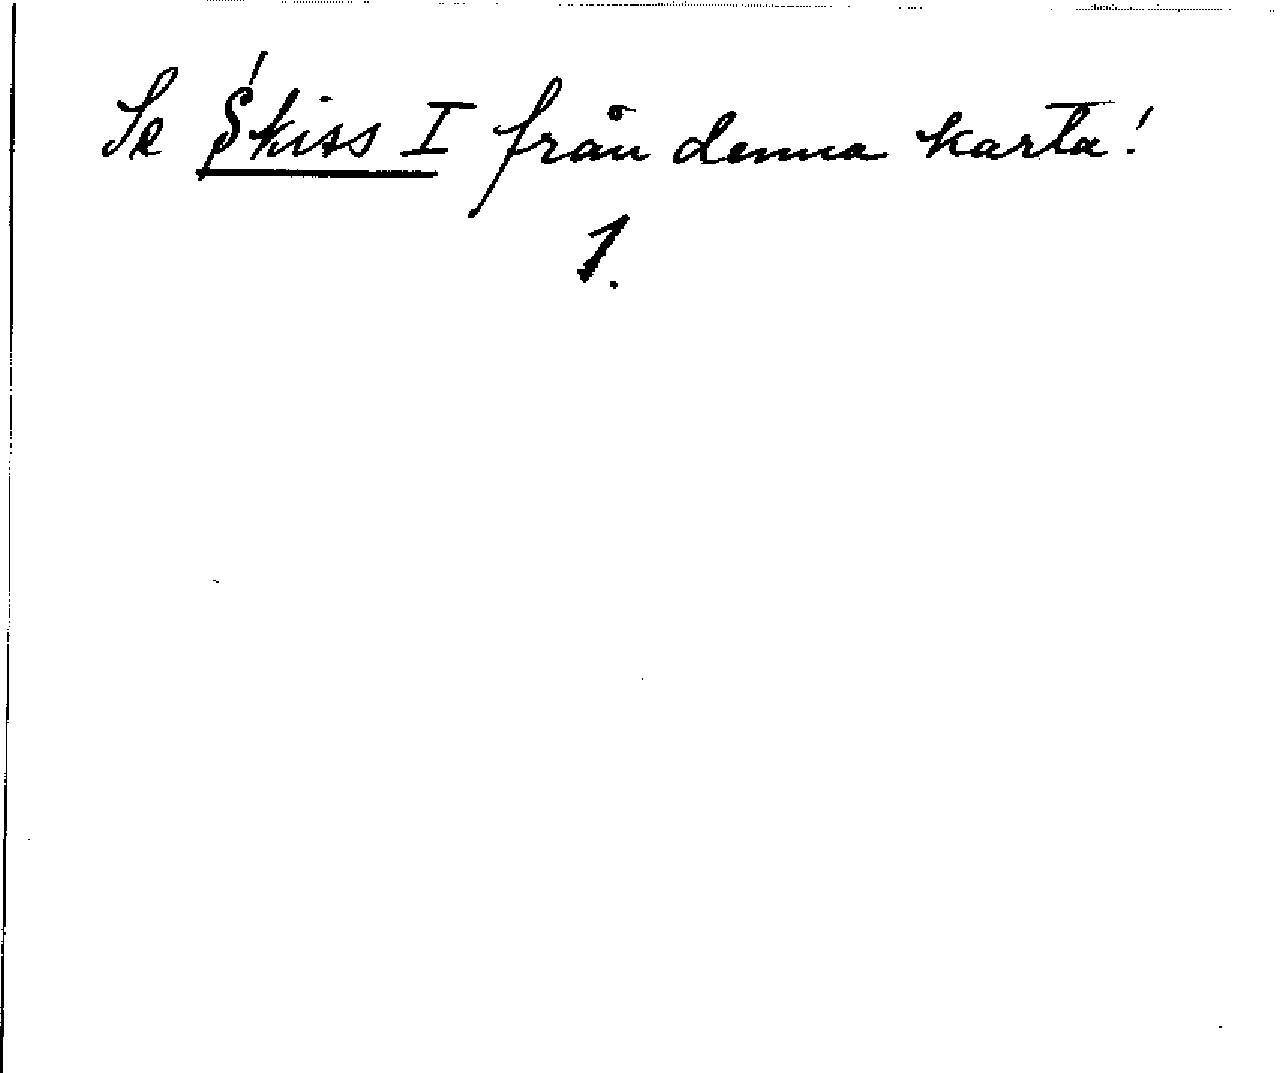 Se Skiss I från denna karta!
1.